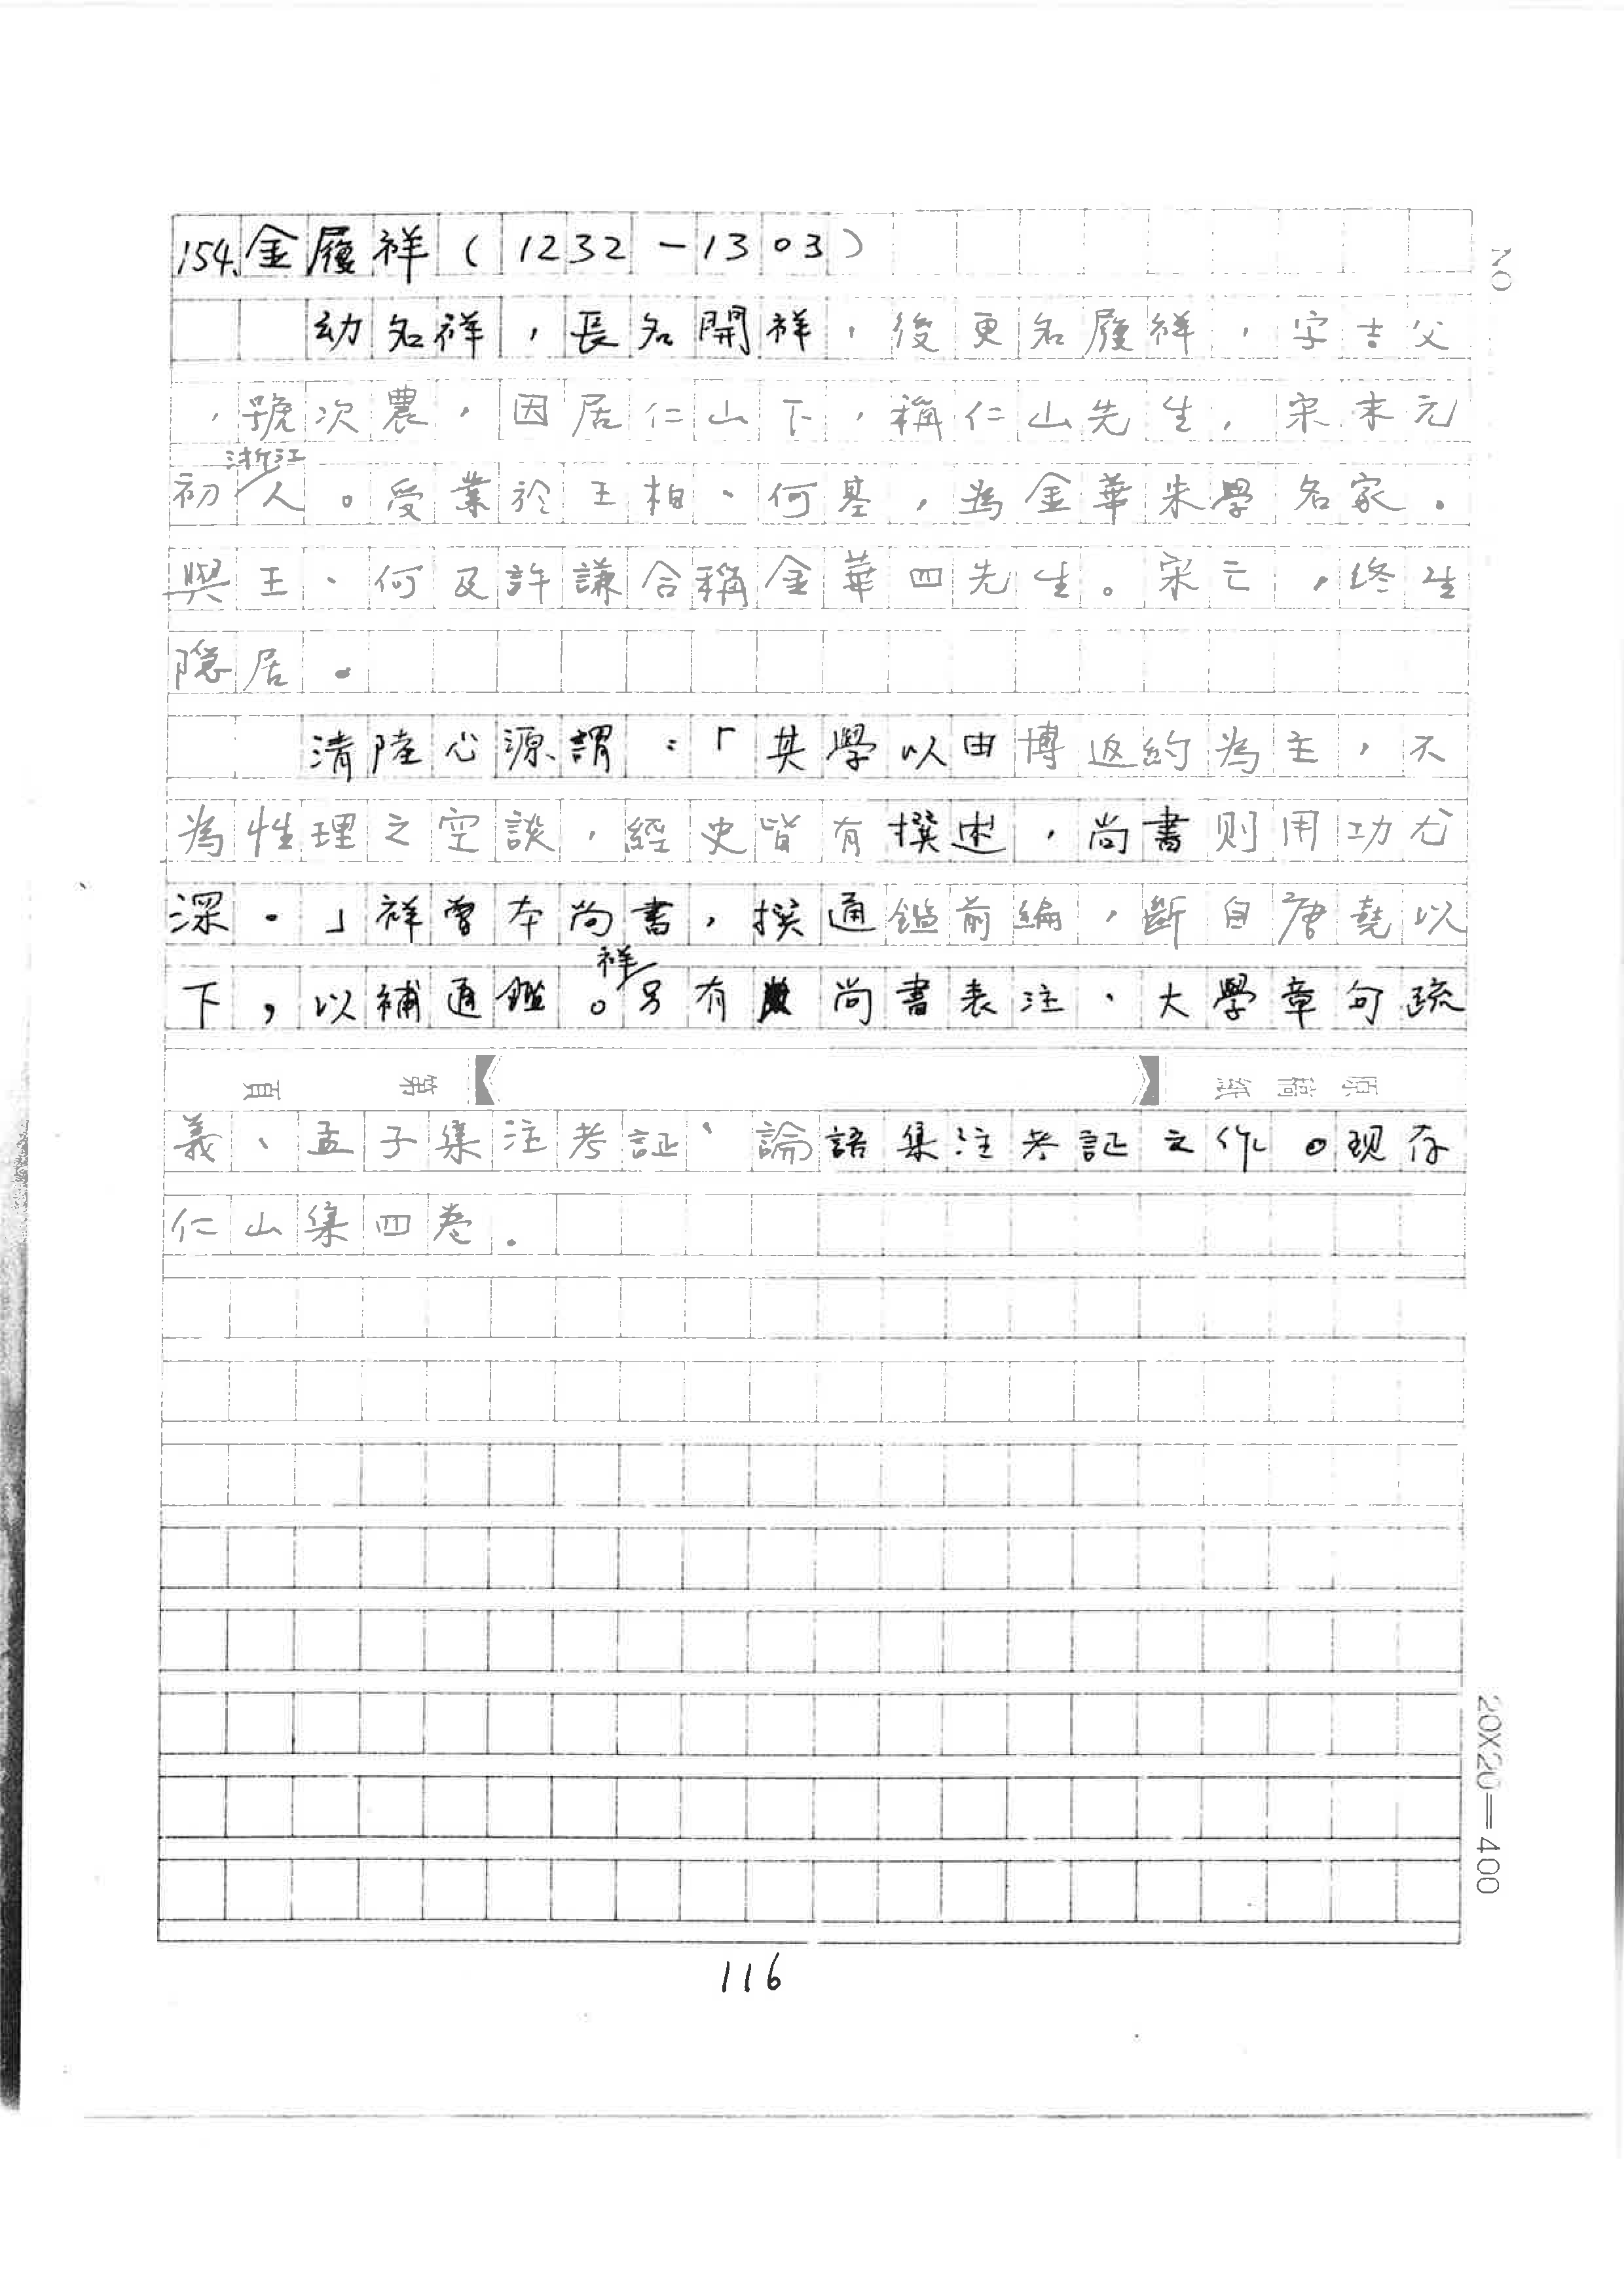 154.金履祥(1232-1303)
幼名祥,長名開祥,後更名履祥,字吉父
,號次農,因居仁山下,稱仁山先生,宋末元
初浙江人。受業於王柏、何基,為金華朱學名家。
與王、何及許謙合稱金華四先生。宋亡,終生
隱居。
清陸心源謂:「其學以由博返約為主,不
為性理之空談,經史皆有撰述,尚書則用功尤
深。」祥曾本尚書,撰通鑑前編,斷自唐堯以
下,以補通鑑。祥另有尚書表注、大學章句疏
義、孟子集注考証、論語集注考証之作。现存
仁山集四卷。
原稿紙 第 頁
NO
20X20=400
116